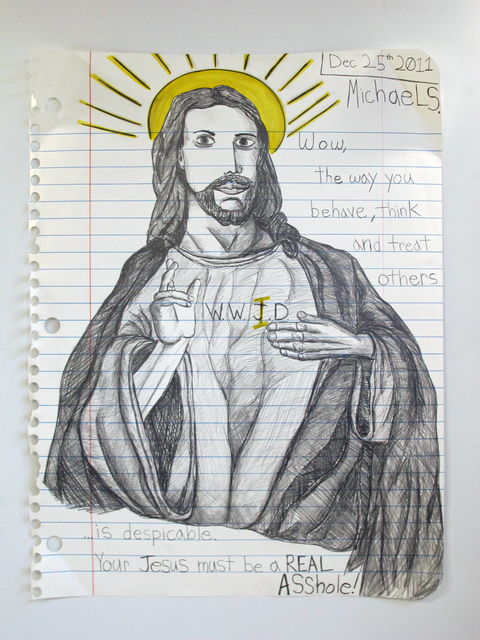 Dec 25th 2011
Michael S.
Wow,
the way you
behave, think
and treat
others
W.W.J.D
...is despicable.
Your Jesus must be a REAL
ASShole!